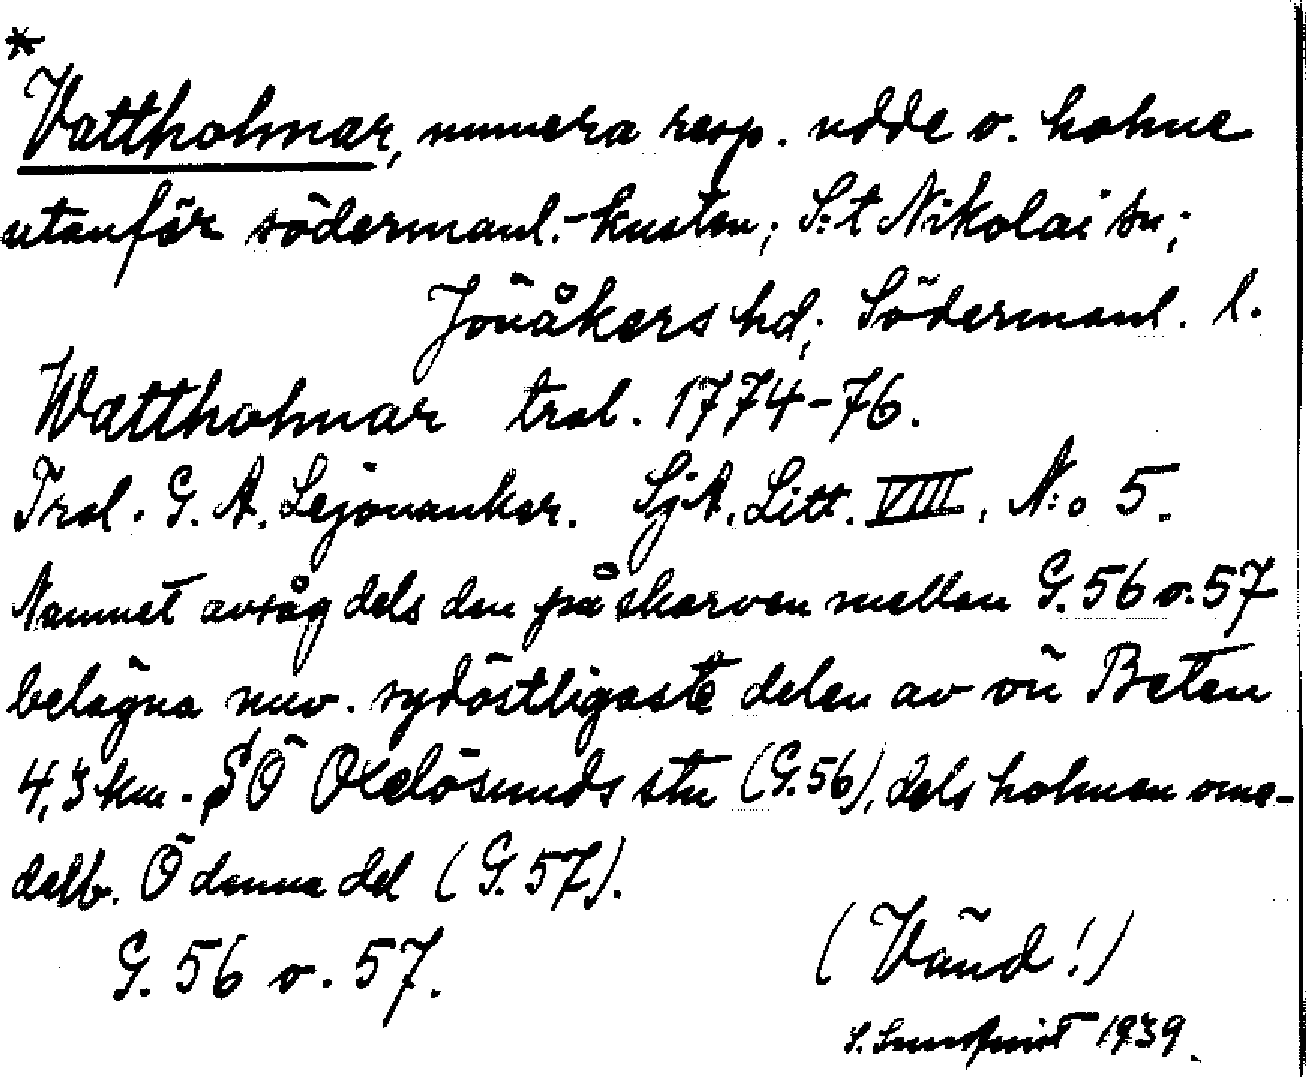 *
Vattholmar, numera resp. udde o. holme
utanför södermanl.-kusten; S:t Nikolai sn;
Jönåkers hd; Södermanl. l.
Wattholmar trol. 1774-76.
Trol. G. A. Lejonanker. SjA. Litt. VIII, N:o 5.
Namnet avsåg dels den på skarven mellan G. 56 o. 57
belägna nuv. sydöstligaste delen av ön Beten
4,3 km. SÖ Oxelösunds stn (G. 56), dels holmen ome-
delb. Ö denna del (G. 57).
G. 56 o. 57.
(Vänd!)
S. Sundqvist 1939.